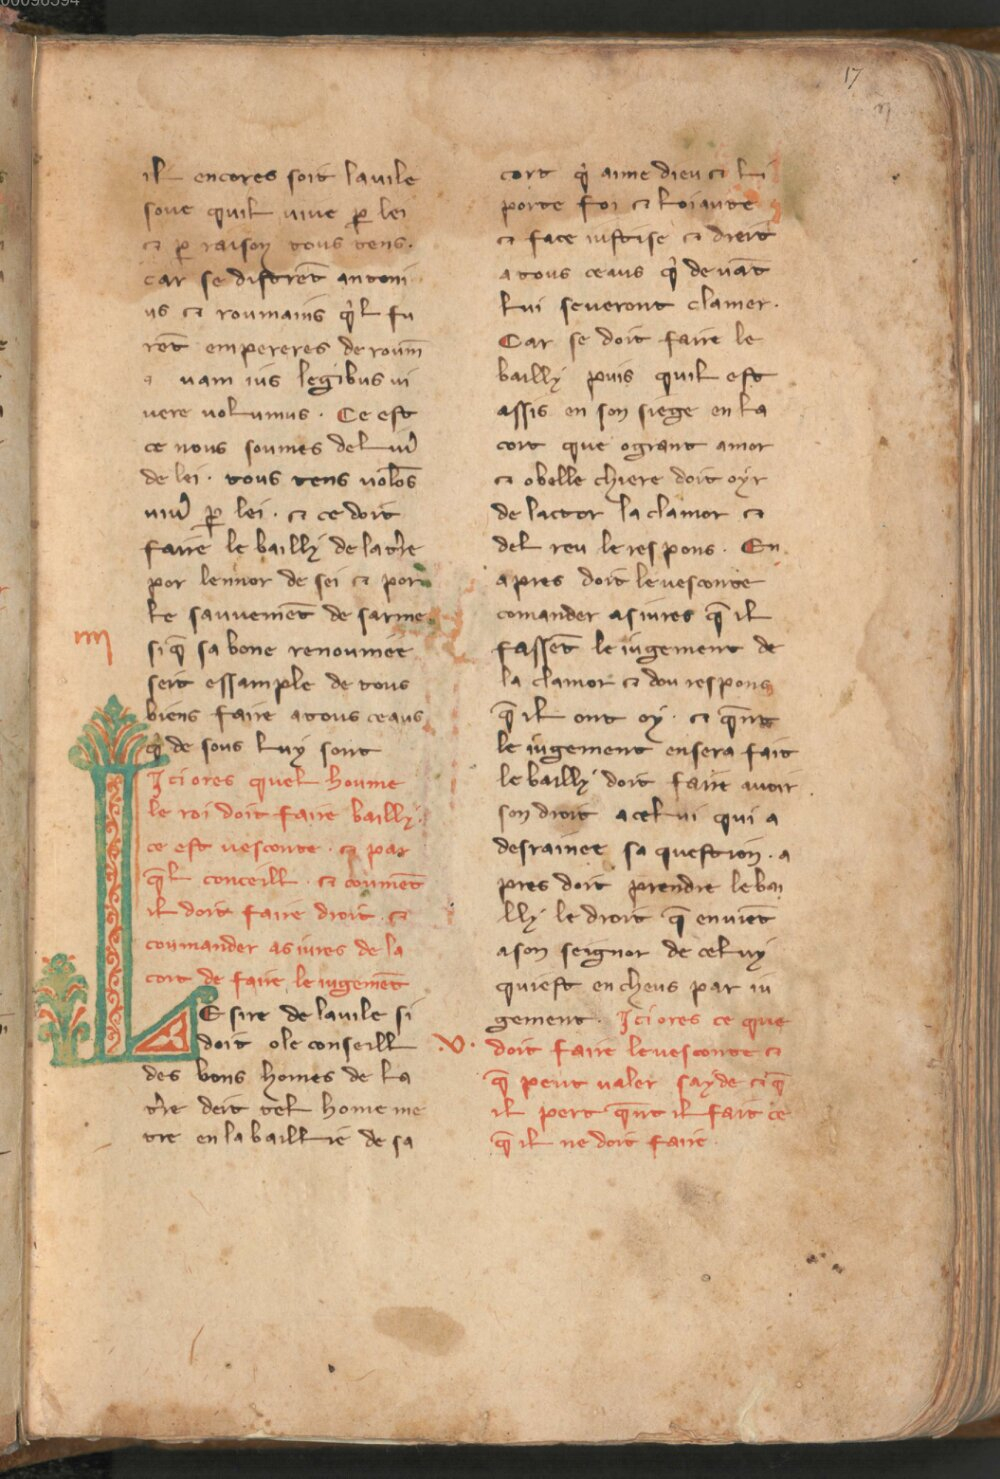 00096394
17
il encores soit lauile
soue quil uiue p̱ lei
⁊ p̱ raison tous tens.
car se distrēt antoni
us ⁊ roumains q̇l fu
rēt empereres de roum̄
a uam ius legibus ui
uere uolumus. Ce est
ce nous soumes del uiu̓
de lei. tous tens uolōs
uiu̓ p̱ lei. ⁊ ce doit
faire le bailly de la tr̓e
por lennor de sei ⁊ por
le sauuemēt de sarme
si q̄ sa bone renoumee
seit essample de tous
biens faire a tous ceaus
q̇ de sous luy sont
iiii
Ici ores quel houme
le roi doit faire bailly.
ce est uesconte. ⁊ par
q̄l conceill. ⁊ coumēt
il doit faire droit. ⁊
coumander as iures de la
cort de faire le iugemēt
LE sire de lauile si
doit ole conseill
des bons homes de la
tr̓e deit tel home me
tre en la baillie de sa
cort q̇ aime dieu ⁊ li
porte foi ⁊ loiaute
⁊ face iustise ⁊ dreit
a tous ceaus q̇ deuāt
lui seueront clamer.
Car se doit faire le
bailly puis quil est
assis en son siege en la
cort que ogrant amor
⁊ obelle chiere doit oyr
de lactor la clamor ⁊
del reu le respons. En
apres doit le uesconte
comander as iures q̄ il
fassēt le iugement de
la clamor ⁊ dou respons
q̄ il ont oy. ⁊ q̄nt
le iugement en sera fait
le bailly doit faire auoir
son droit a celui qui a
desrainee sa question. a
pres doit prendre le bai
lly le droit q̄ en uiēt
a son seignor de celuy
qui est encheus par iu
gement. Ici ores ce que
.v. doit faire le uesconte ⁊
q̄ peut ualer sayde ⁊ q̄
il pert q̄nt il fait ce
q̄ il ne doit faire.